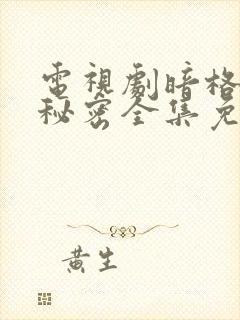 電視劇暗格
秘密全集免
黃生